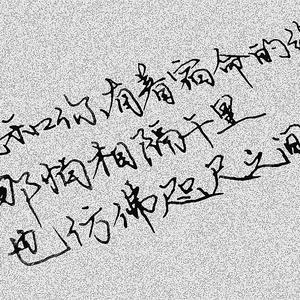 和你有着宿命的
那怕相隔千里
也仿佛咫尺之间